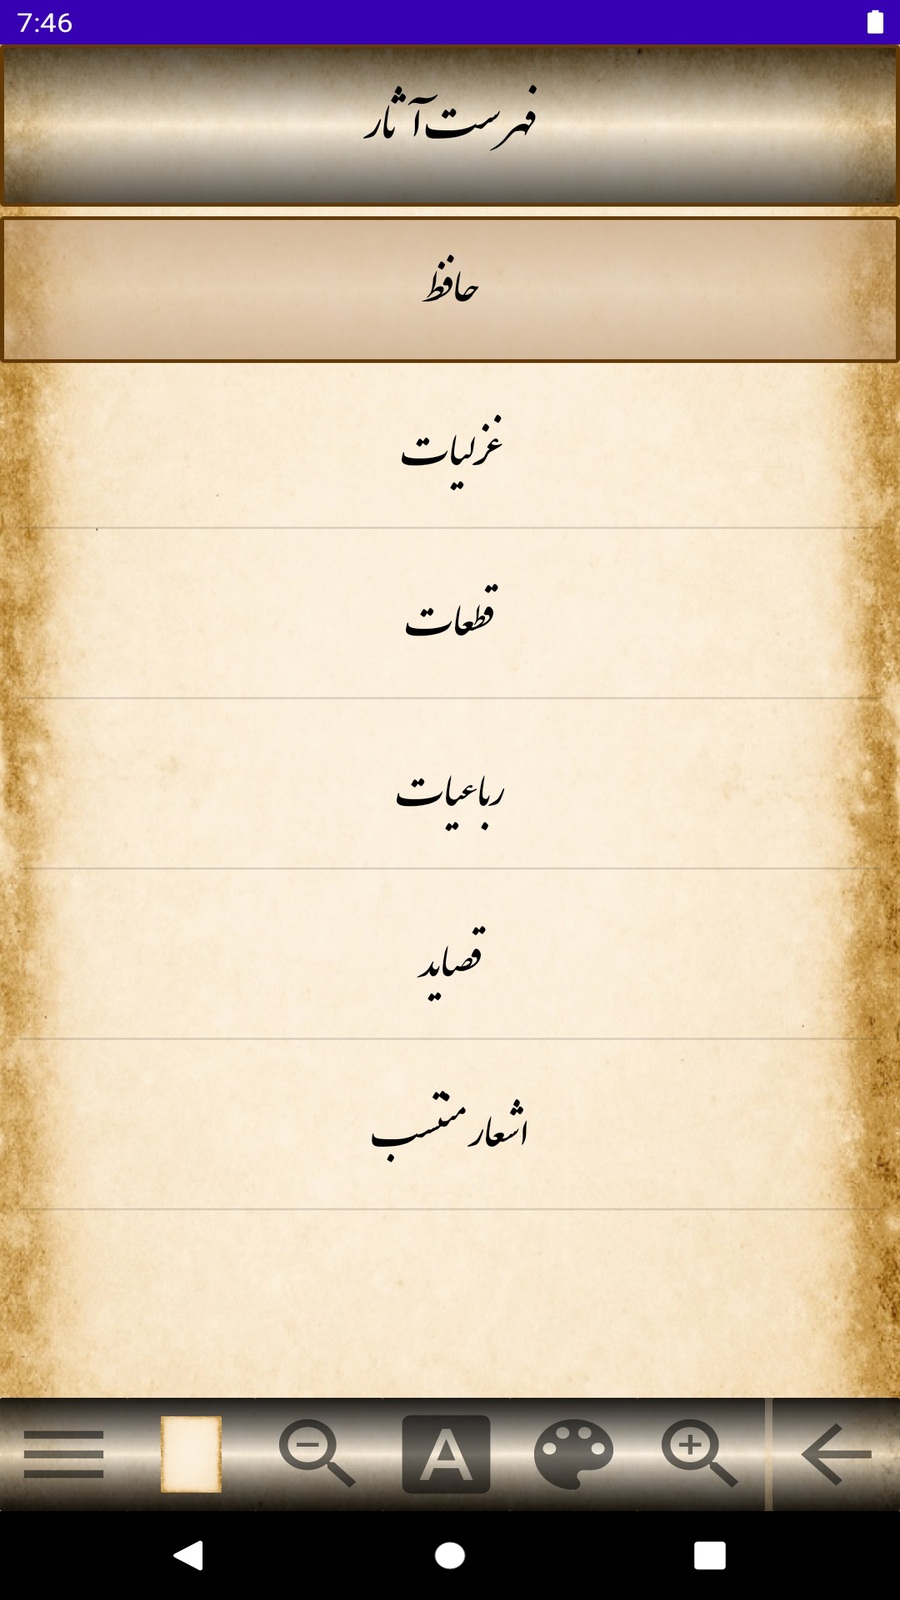 7:46
فهرست آثار
حافظ
غزلیات
قطعات
رباعیات
قصاید
اشعار منتسب
A